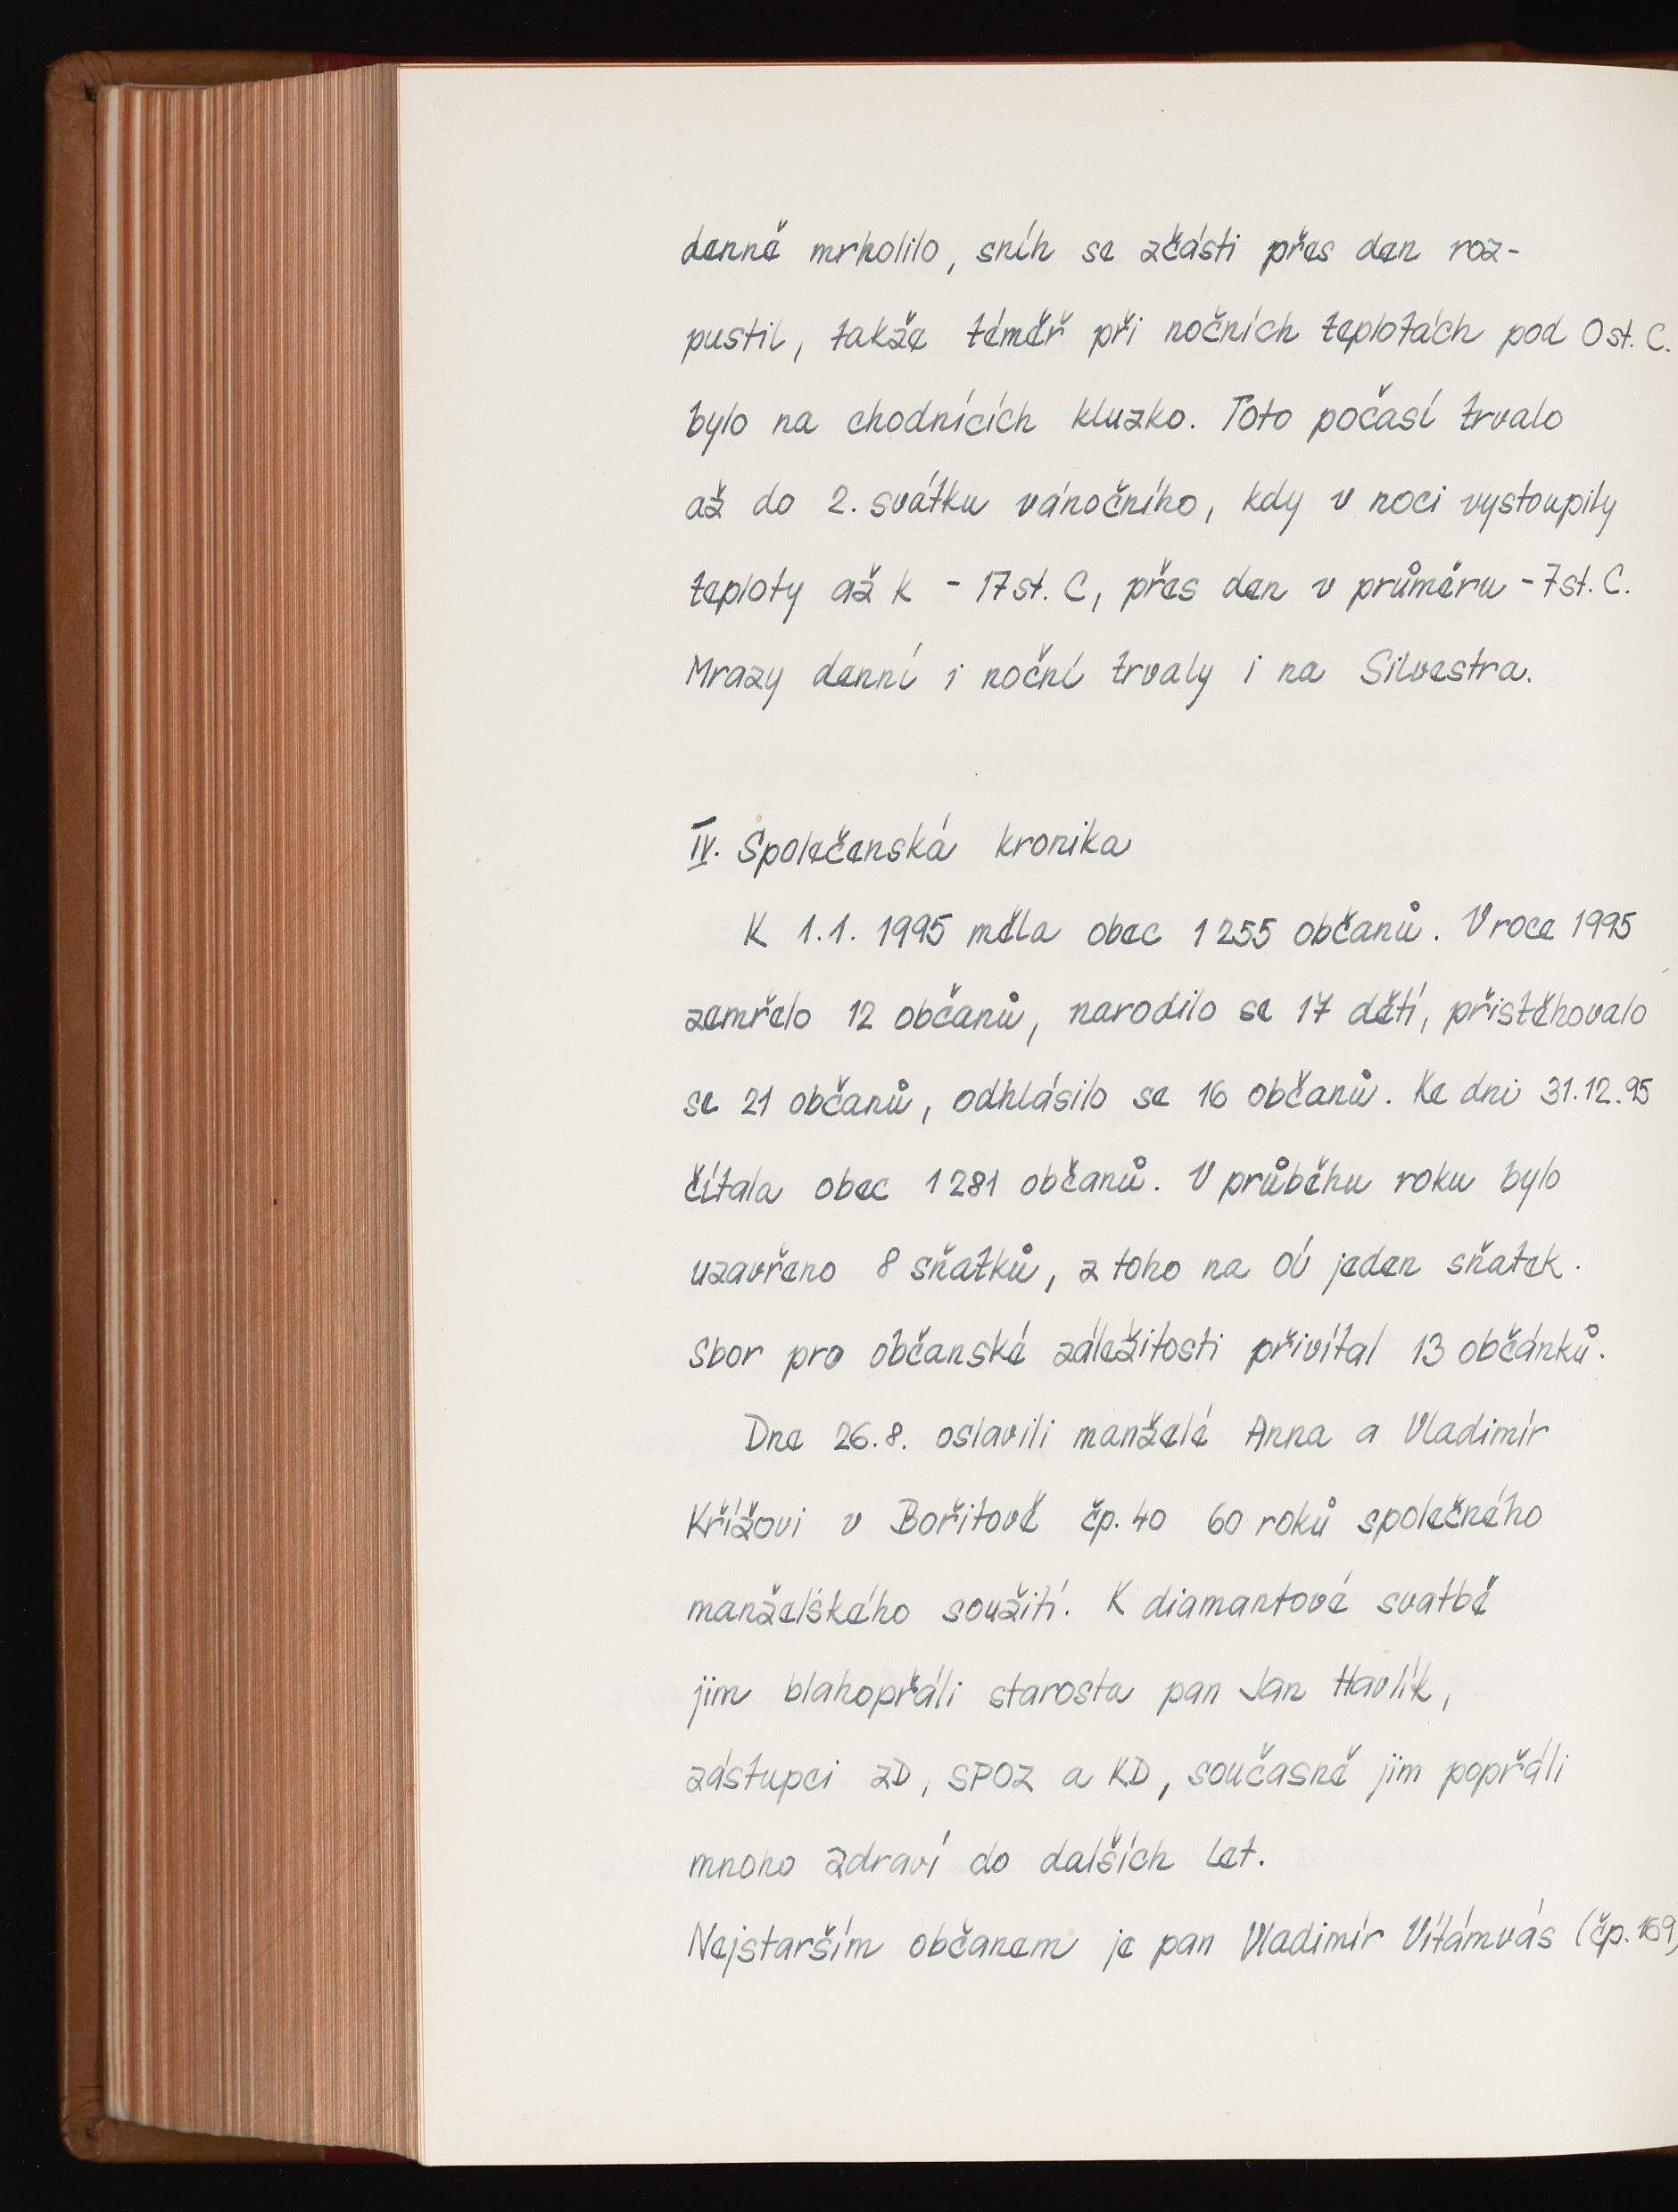 denně mrholilo, sníh se zčásti přes den roz-
pustil, takže téměř při nočních teplotách pod 0 st. C.
bylo na chodnících kluzko. Toto počasí trvalo
až do 2. svátku vánočního, kdy v noci vystoupily
teploty až k - 17 st. C, přes den v průměru - 7 st. C.
Mrazy denní i noční trvaly i na Silvestra.
IV. Společenská kronika
K 1.1. 1995 měla obec 1 255 občanů. V roce 1995
zemřelo 12 občanů, narodilo se 17 dětí, přistěhovalo
se 21 občanů, odhlásilo se 16 občanů. Ke dni 31.12.95
čítala obec 1 281 občanů. V průběhu roku bylo
uzavřeno 8 sňatků, z toho na OÚ jeden sňatek.
Sbor pro občanské záležitosti přivítal 13 občánků.
Dne 26.8. oslavili manželé Anna a Vladimír
Křížovi v Bořitově čp. 40 60 roků společného
manželského soužití. K diamantové svatbě
jim blahopřáli starosta pan Jan Havlík,
zástupci ZD, SPOZ a KD, současně jim popřáli
mnoho zdraví do dalších let.
Nejstarším občanem je pan Vladimír Vítámvás (čp. 169)